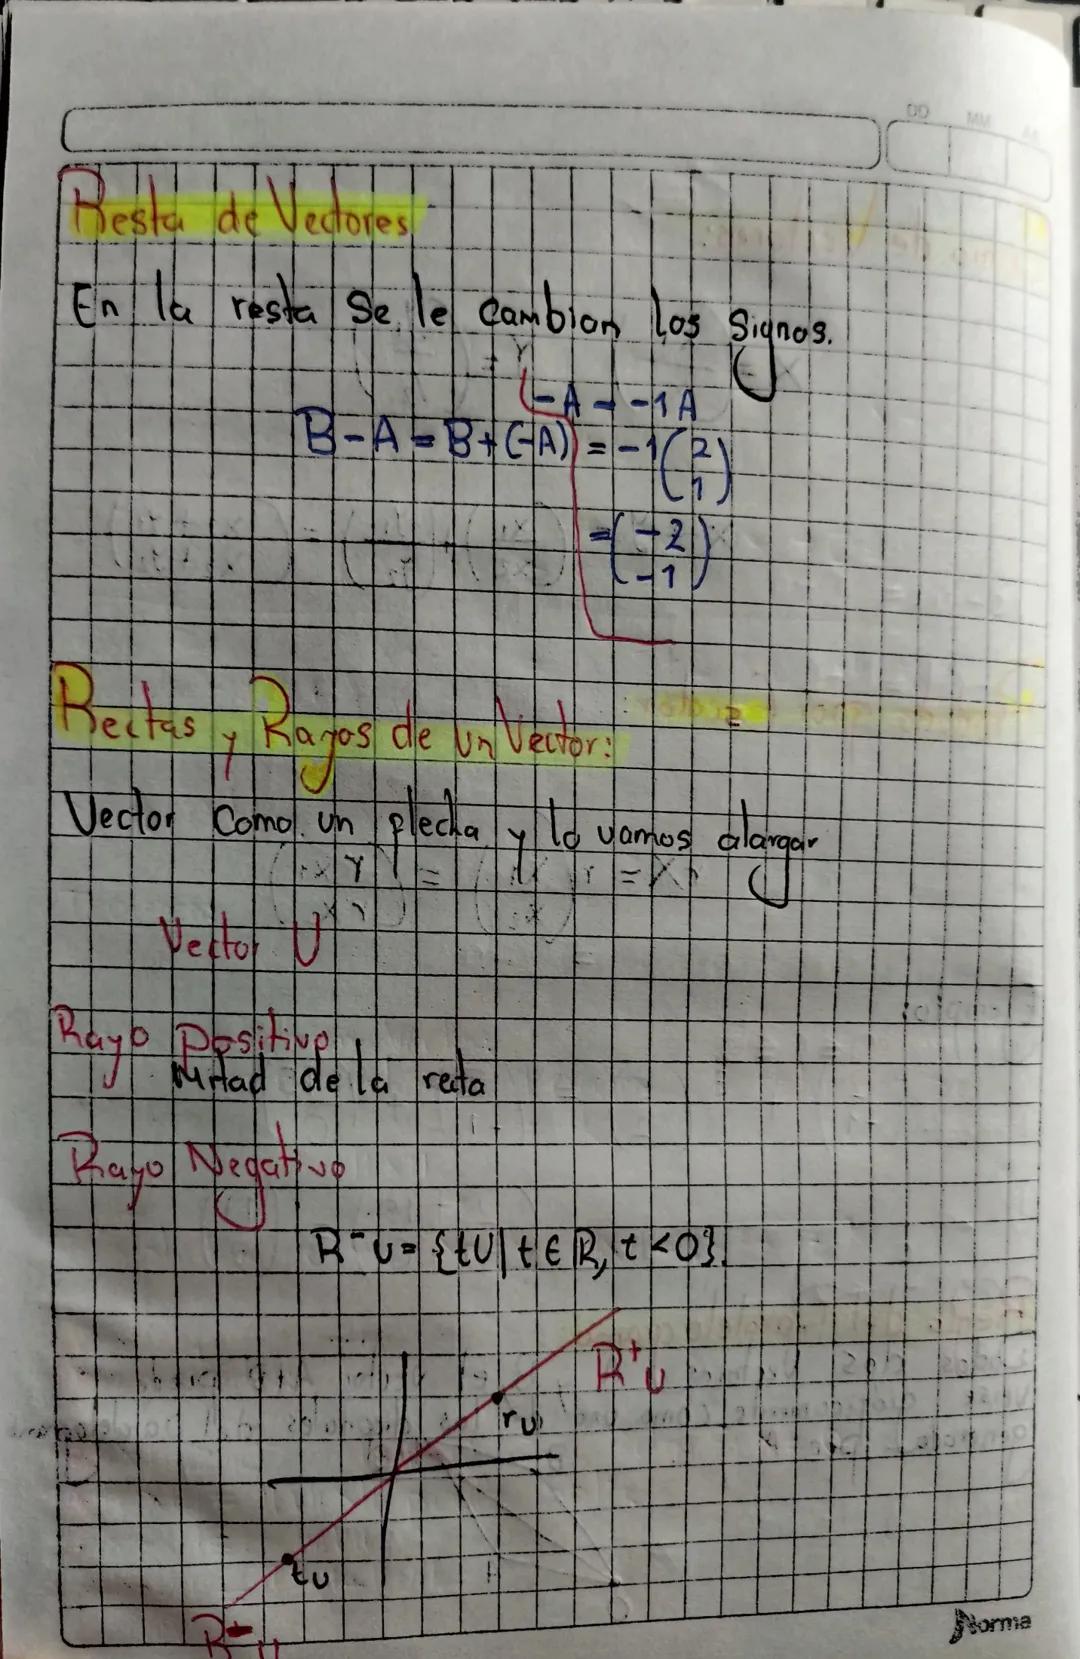 DD MM AA
Resta de Vectores
En la resta Se le cambian los Signos.
-A = -1A
B-A = B+(-A) = -1(2
1)
=(-2
-1)
Rectas y Rayos de un Vector:
Vector Como un flecha y lo vamos alargar
Vector U
Rayo Positivo
Mitad de la recta
Rayo Negativo
R⁻U= {tU | t ∈ R, t <0}
R⁺U
rU
tU
R⁻U
Norma